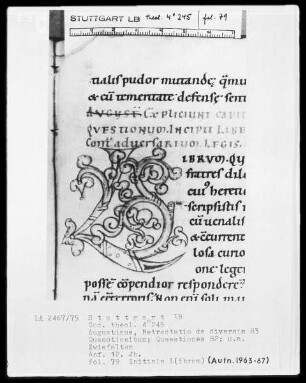 STUTTGART LB theol. 4° 245 fol. 79
tialis pudor mutandę; qm̄u
& cū temeritate defense sent
AVGVSTI. EXPLICIVNT CAPIT
QVESTIONVM. INCIPIT LIBE
CONT̄ ADVERSARIVM LEGIS.
LIBRVM. QV
fratres dile
cui' heretic
scripsistis
cū uenalis
& c̄current
losa curio
one leger
possē cōpendio respondere
LE 2467/75 Stuttgart LB
Cod. theol. 4°245
Augustinus, Retractatio de diversis 83
Quaestionibus; Quaestiones 82; u.a.
Zwiefalten
Anf. 12. Jh.
fol. 79 Initiale L(ibrum) (Aufn. 1963-67)